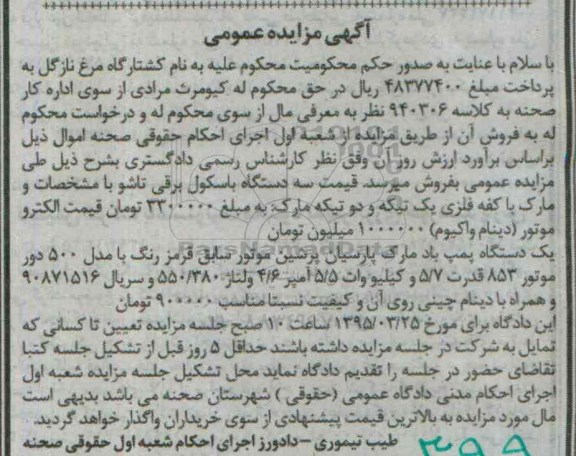 آگهی مزایده عمومی
با سلام با عنایت به صدور حکم محکومیت محکوم علیه به نام کشتارگاه مرغ نازگل به
پرداخت مبلغ ۴۸۳۷۷۴۰۰ ریال در حق محکوم له کیومرث مرادی از سوی اداره کار
صحنه به کلاسه ۹۴۰۳۰۶ نظر به معرفی مال از سوی محکوم له و درخواست محکوم
له به فروش آن از طریق مزایده از شعبه اول اجرای احکام حقوقی صحنه اموال ذیل
براساس برآورد ارزش روز آن وفق نظر کارشناس رسمی دادگستری بشرح ذیل طی
مزایده عمومی بفروش میرسد. قیمت سه دستگاه باسکول برقی تاشو با مشخصات و
مارک با کفه فلزی یک تیکه و دو تیکه مارک: به مبلغ ۳۳۰۰۰۰۰ تومان قیمت الکترو
موتور (دینام واکیوم) ۱۰۰۰۰۰۰ میلیون تومان
یک دستگاه پمپ باد مارک پارسیان پرشین موتور سابق قرمز رنگ با مدل ۵۰۰ دور
موتور ۸۵۳ قدرت ۵/۷ و کیلو وات ۵/۵ آمپر ۴/۶ ولتاژ ۵۵۰/۳۸۰ و سریال ۹۰۸۷۱۵۱۶
و همراه با دینام چینی روی آن و کیفیت نسبتا مناسب ۹۰۰۰۰۰ تومان
این دادگاه برای مورخ ۱۳۹۵/۰۳/۲۵ ساعت ۱۰ صبح جلسه مزایده تعیین تا کسانی که
تمایل به شرکت در جلسه مزایده داشته باشند حداقل ۵ روز قبل از تشکیل جلسه کتبا
تقاضای حضور در جلسه را تقدیم دادگاه نماید محل تشکیل جلسه مزایده شعبه اول
اجرای احکام مدنی دادگاه عمومی (حقوقی) شهرستان صحنه می باشد بدیهی است
مال مورد مزایده به بالاترین قیمت پیشنهادی از سوی خریداران واگذار خواهد گردید.
طیب تیموری - دادورز اجرای احکام شعبه اول حقوقی صحنه
۳۹۹
ParsNamadData